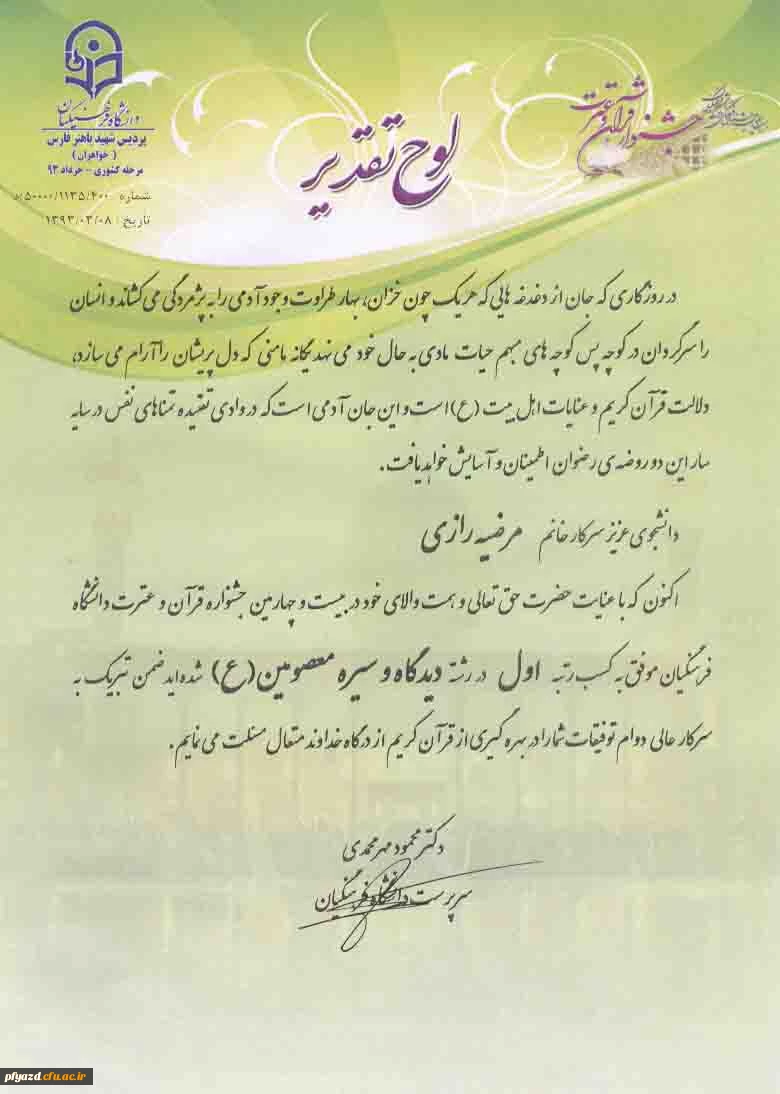 دانشگاه فرهنگیان
پردیس شهید باهنر فارس
(خواهران)
مرحله کشوری - خرداد ۹۳
شماره : ۵۰۰۰۰/۱۱۳۵/۴۰۰/د
تاریخ : ۱۳۹۳/۰۳/۰۸
جشنواره قرآن و عترت
لوح تقدیر
در روزگاری که جان از دغدغه هایی که هریک چون خزان، بهار طراوت وجود آدمی را به پژمردگی می کشاند و انسان
را سرگردان در کوچه پس کوچه های مبهم حیات مادی به حال خود می نهد یگانه مامنی که دل پریشان را آرام می سازد،
دلالت قرآن کریم و عنایات اهل بیت (ع) است و این جان آدمی است که در وادی تفتیده تمناهای نفس در سایه
سار این دو روضه ی رضوان اطمینان و آسایش خواهد یافت.
دانشجوی عزیز سرکار خانم مرضیه رازی
اکنون که با عنایت حضرت حق تعالی و همت والای خود در بیست و چهارمین جشنواره قرآن و عترت دانشگاه
فرهنگیان موفق به کسب رتبه اول در رشته دیدگاه و سیره معصومین (ع) شده اید ضمن تبریک به
سرکار عالی دوام توفیقات شما را در بهره گیری از قرآن کریم از درگاه خداوند متعال مسئلت می نمایم.
دکتر محمود مهرمحمدی
سرپرست دانشگاه فرهنگیان
pfyazd.cfu.ac.ir